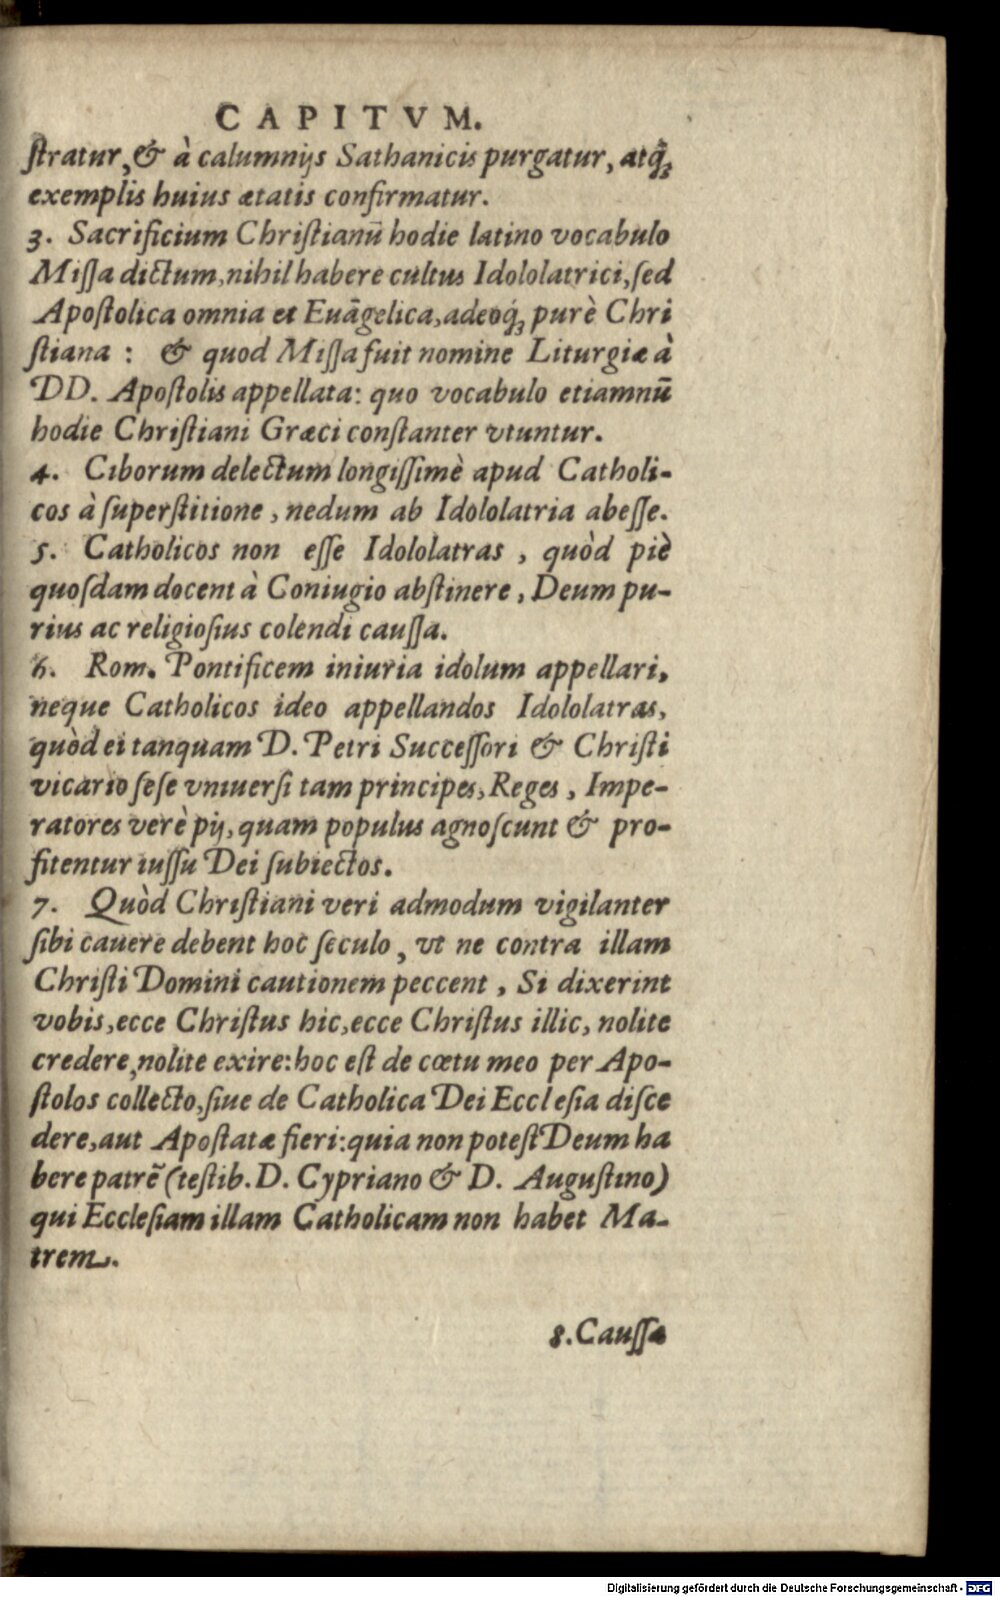 CAPITVM.
ſtratur, & à calumnijs Sathanicis purgatur, atq́ꝫ
exemplis huius ætatis confirmatur.
3. Sacrificium Chriſtianū hodie latino vocabulo
Miſſa dictum, nihil habere cultus Idololatrici, ſed
Apoſtolica omnia et Euāgelica, adeoq́ꝫ purè Chri
ſtiana : & quod Miſſa fuit nomine Liturgiæ à
DD. Apoſtolis appellata: quo vocabulo etiamnū
hodie Chriſtiani Græci conſtanter vtuntur.
4. Ciborum delectum longiſſimè apud Catholi-
cos à ſuperſtitione, nedum ab Idololatria abeſſe.
5. Catholicos non eſſe Idololatras, quòd piè
quoſdam docent à Coniugio abſtinere, Deum pu-
rius ac religioſius colendi cauſſa.
6. Rom. Pontificem iniuria idolum appellari,
neque Catholicos ideo appellandos Idololatras,
quòd ei tanquam D. Petri Succeſſori & Chriſti
vicario ſeſe vniuerſi tam principes, Reges, Impe-
ratores verè pij, quam populus agnoſcunt & pro-
fitentur iuſſu Dei ſubiectos.
7. Quòd Chriſtiani veri admodum vigilanter
ſibi cauere debent hoc ſeculo, vt ne contra illam
Chriſti Domini cautionem peccent, Si dixerint
vobis, ecce Chriſtus hic, ecce Chriſtus illic, nolite
credere, nolite exire: hoc eſt de cœtu meo per Apo-
ſtolos collecto, ſiue de Catholica Dei Eccleſia diſce
dere, aut Apoſtatæ fieri: quia non poteſt Deum ha
bere patrē (teſtib. D. Cypriano & D. Auguſtino)
qui Eccleſiam illam Catholicam non habet Ma-
trem.
8. Cauſſæ
Digitalisierung gefördert durch die Deutsche Forschungsgemeinschaft - DFG